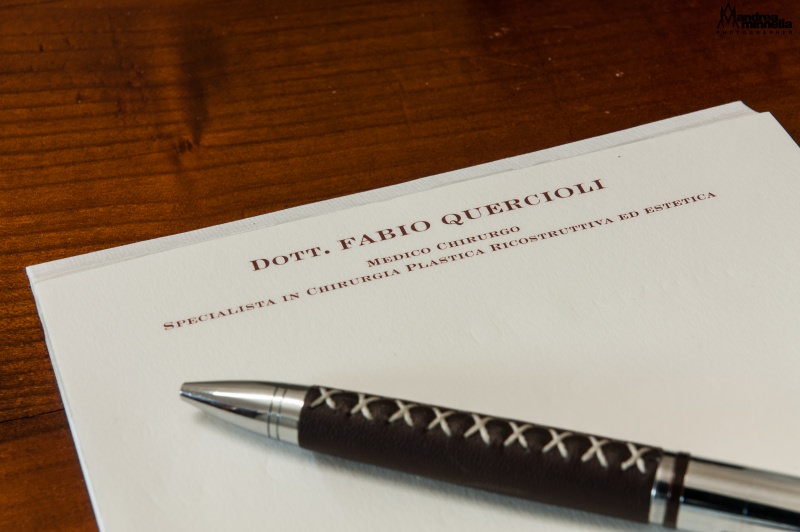 Mandrea
minnella
PHOTOGRAPHER
DOTT. FABIO QUERCIOLI
MEDICO CHIRURGO
SPECIALISTA IN CHIRURGIA PLASTICA RICOSTRUTTIVA ED ESTETICA